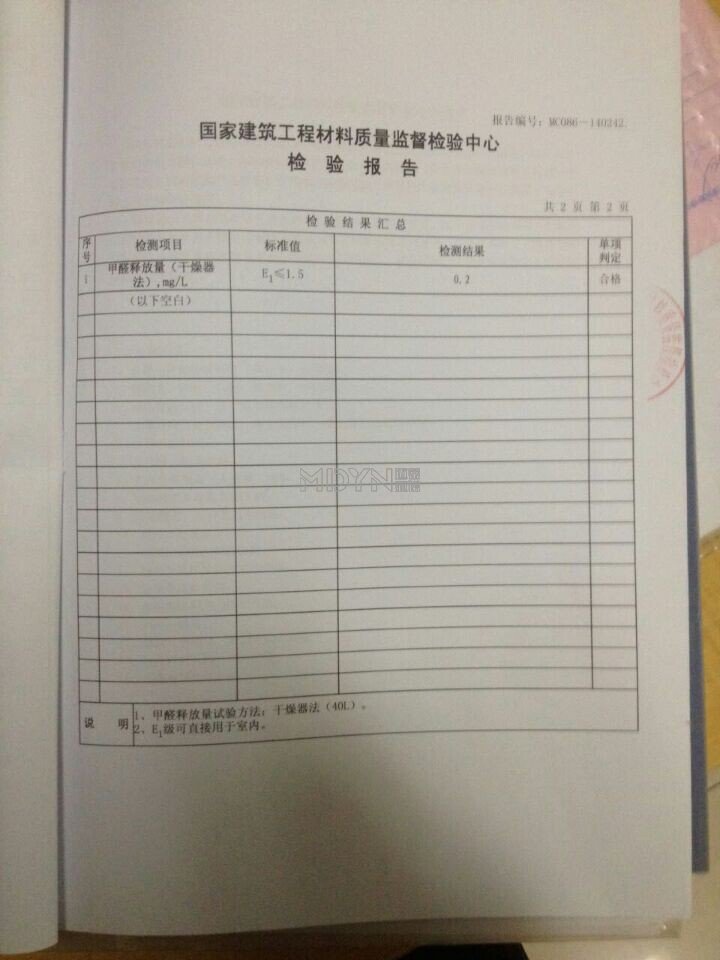 报告编号：MC086-140242.
国家建筑工程材料质量监督检验中心
检 验 报 告
共 2 页 第 2 页
检 验 结 果 汇 总
序号 检测项目 标准值 检测结果 单项判定
1 甲醛释放量（干燥器法）,mg/L E1≤1.5 0.2 合格
（以下空白）
MDYN
说 明
1、甲醛释放量试验方法：干燥器法（40L）。
2、E1级可直接用于室内。